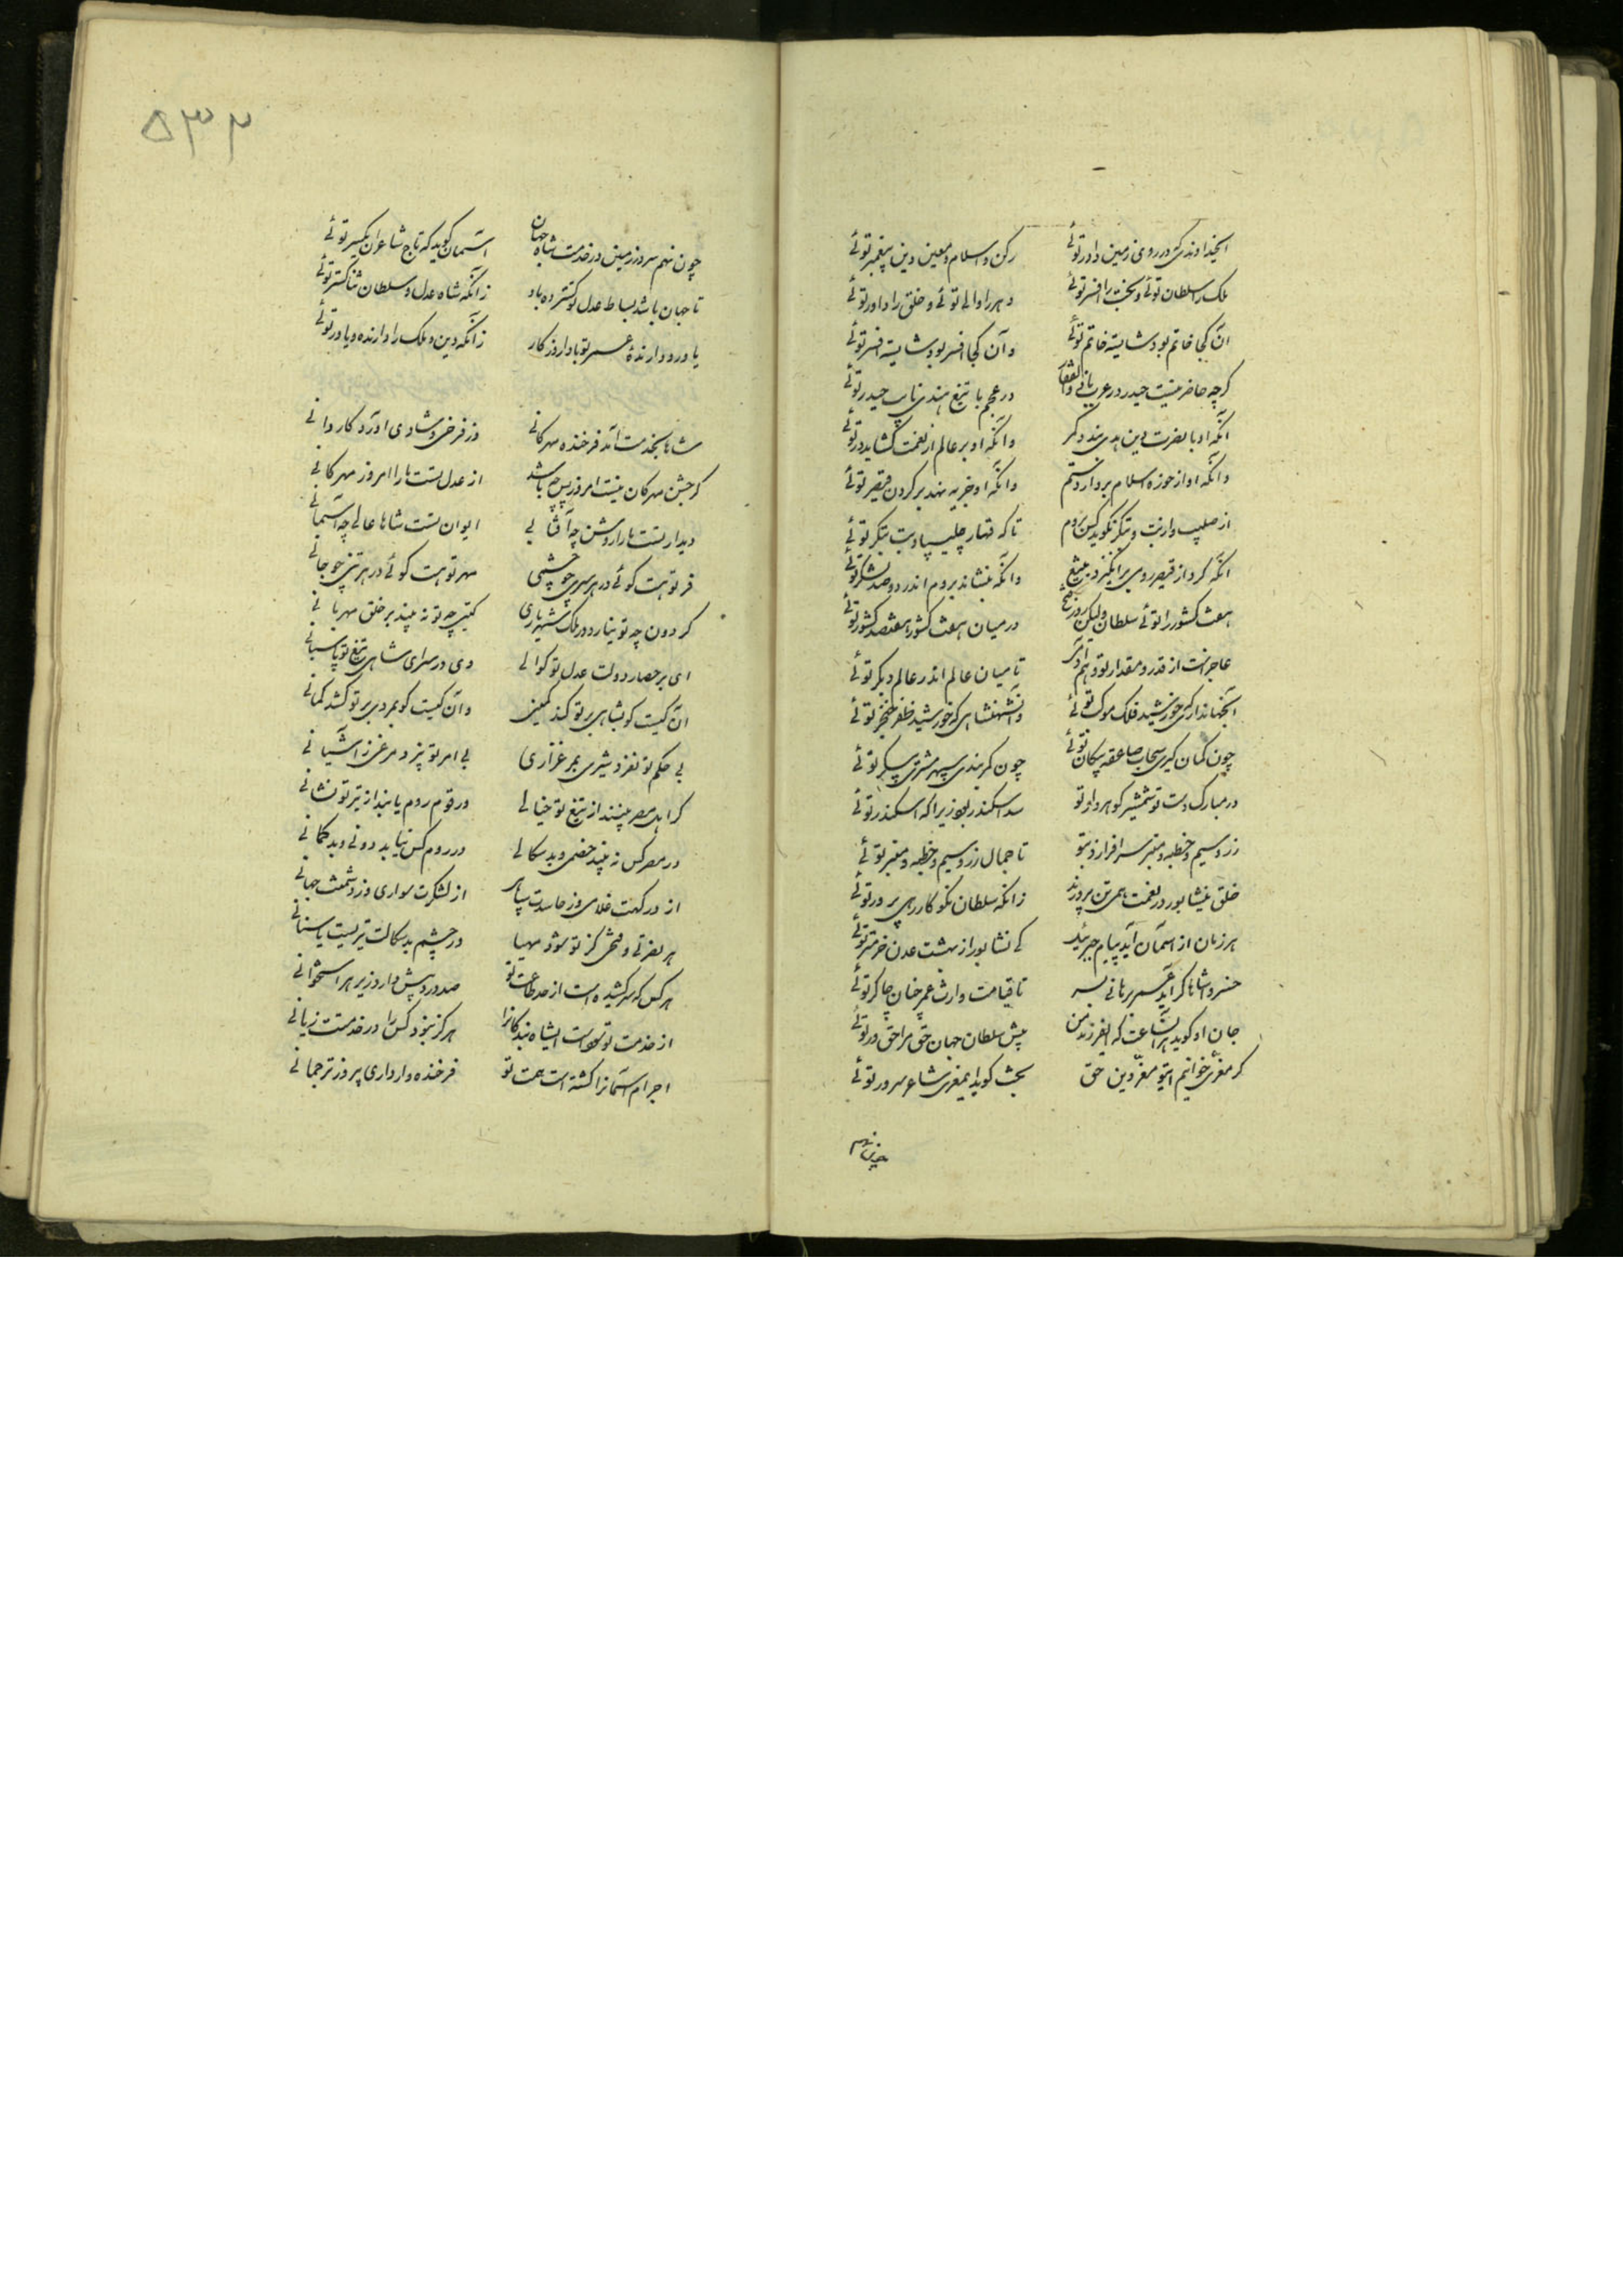 ایخداوندی که در روی زمین داور توئی رکن اسلام و معین دین پیغمبر توئی
ملک را سلطان توئی و بخت را افسر توئی دهر را والی توئی و خلق را داور توئی
آن کجا خاتم بود شایسته خاتم توئی و آن کجا افسر بود شایسته افسر توئی
کرچه حاضر نیست حیدر در عرب با ذوالفقار در عجم با تیغ هندی نایب حیدر توئی
آنکه او با نصرت دین بندد کمر وانکه او بر عالم از نعمت کشاید در توئی
وانکه او از حوزه اسلام بردارد ستم وانکه او جزیه نهد بر کردن قیصر توئی
از صلیب و از بت و بتکر نکوید کس بروم تا که قهار چلیپا و بت و بتکر توئی
آنکه کرد از قیصر رومی برانکیزد بتیغ وانکه بنشاند بروم اندر دو صد لشکر توئی
هفت کشور را توئی سلطان ولیکن روز فتح در میان هفت کشور هفتصد کشور توئی
عاجز است از قدر و مقدار تو وهم آدمی تا میان عالم اندر عالم دیکر توئی
آنجهانداری که خورشید فلک موکب توئی وآن شهنشاهی که خورشید ظفر خنجر توئی
چون کمان کیری سحاب صاعقه پیکان توئی چون کمر بندی سپهر مشتری پیکر توئی
در مبارک دست تو شمشیر کوهردار تو سد اسکندر بود زیرا که اسکندر توئی
زر و سیم و خطبه و منبر سرافرازد بتو تا جمال زر و سیم و خطبه و منبر توئی
خلق نیشابور در نعمت همی تن پرورند زانکه سلطان نکوکار رهی پرور توئی
هر زمان از آسمان آید پیام جبرئیل کای نشابور از بهشت عدن خرمتر توئی
خسروا شاها کر آید برهانی بسر تا قیامت وارث عمر چنان چاکر توئی
جان او کوید هر آنساعت که ای فرزند من پیش سلطان جهان حق مرا حق ور توئی
کر معزی خوانیم ایتو معز دین حق بخت کوید ای معزی شاعر سرور توئی
۵۳۲
چون نهم سر بر زمین در خدمت شاه جهان آسمان کوید که تاج شاعران یکسر توئی
تا جهان باشد بساط عدل تو کسترده باد زانکه شاه عدل و سلطان ثنا کستر توئی
یاور و دارنده عمر تو بادا روزکار زانکه دین و ملک را دارنده و یاور توئی
شاها بخدمت آمد فرخنده مهرکانی وز فرخی و شادی آورد کاروانی
کر جشن مهرکان نیست امروز پس چه باشد از عدل تست ما را امروز مهرکانی
دیدار تست ما را روشن چو آفتابی ایوان تست شاها عالی چو آسمانی
فر تو هست کوئی در هر سری چو چشمی مهر تو هست کوئی در هر تنی چو جانی
کردون چو تو نیارد در ملک شهریاری کیتی چو تو نه بیند بر خلق مهربانی
ای بر حصار دولت عدل تو کوتوالی وی در سرای شاهی تیغ تو پاسبانی
آن کیست کو بشاهی بر تو کند کمینی وآن کیست کو بمردی بر تو کشد کمانی
بی حکم تو نغرد شیری بمرغزاری بی امر تو نپرد مرغی ز آشیانی
کر اهل مصر بینند از تیغ تو خیالی ور قوم روم یابند از تیر تو نشانی
در مصر کس نه بیند خصمی و بدسکالی در روم کس نیابد دونی و بدکمانی
از درکهت غلامی وز حاسدت سپاهی از لشکرت سواری وز دشمنت جهانی
هر نصرتی و فتحی کز تو شود مهیا در چشم بدسکالت تیریست یا سنانی
هر کس که سر کشیده است از طاعت تو صد درد بیش دارد زیر هر استخوانی
از خدمت تو سود است ایشاه بندکانرا هرکز نبود کس را در خدمتت زیانی
اجرام آسمانرا کشته است همت تو فرخنده وارداری پیروز ترجمانی